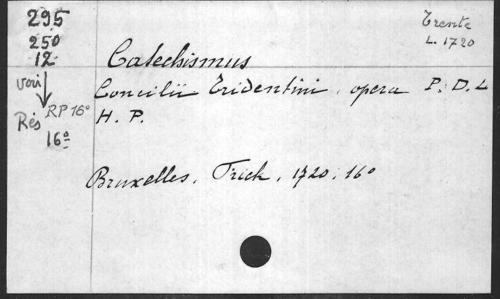 295
250
12
voir
Rés RP 16°
16º
Trente
L. 1720
Catechismus
Concilii Tridentini, opera P. D. L
H. P.
Bruxelles, Frick, 1720, 16º